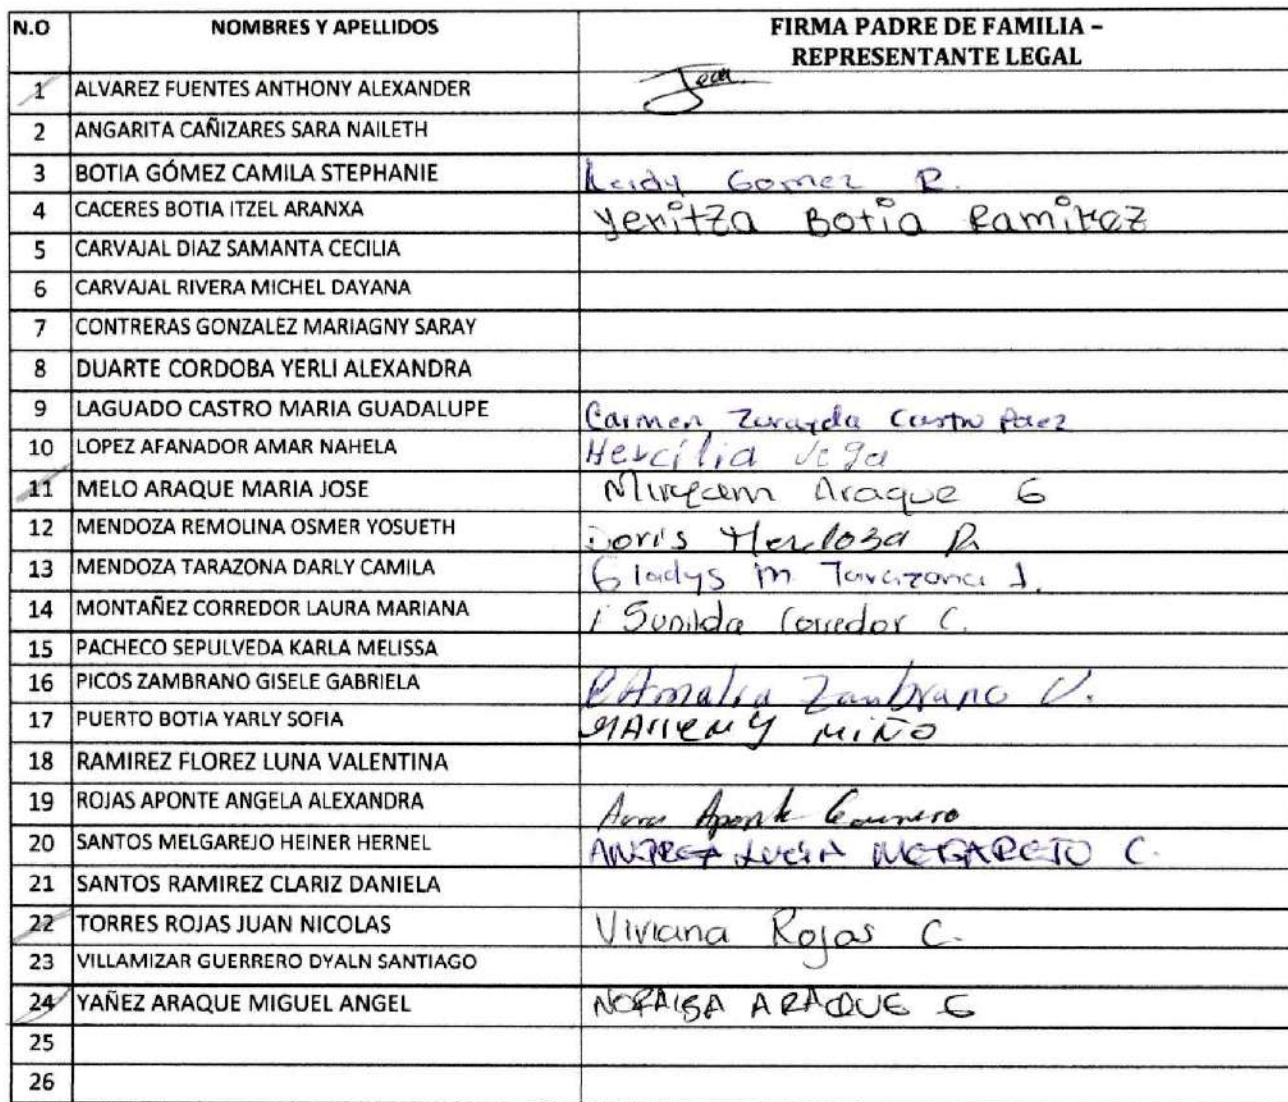 N.O NOMBRES Y APELLIDOS FIRMA PADRE DE FAMILIA –
REPRESENTANTE LEGAL
1 ALVAREZ FUENTES ANTHONY ALEXANDER
2 ANGARITA CAÑIZARES SARA NAILETH
3 BOTIA GÓMEZ CAMILA STEPHANIE Leidy Gomez R.
4 CACERES BOTIA ITZEL ARANXA Yenitza Botia Ramirez
5 CARVAJAL DIAZ SAMANTA CECILIA
6 CARVAJAL RIVERA MICHEL DAYANA
7 CONTRERAS GONZALEZ MARIAGNY SARAY
8 DUARTE CORDOBA YERLI ALEXANDRA
9 LAGUADO CASTRO MARIA GUADALUPE Carmen Castro Paez
10 LOPEZ AFANADOR AMAR NAHELA Hercilia Vega
11 MELO ARAQUE MARIA JOSE Araque G
12 MENDOZA REMOLINA OSMER YOSUETH Doris Mendoza R
13 MENDOZA TARAZONA DARLY CAMILA Gladys M Tarazona J.
14 MONTAÑEZ CORREDOR LAURA MARIANA Sunilda Corredor C.
15 PACHECO SEPULVEDA KARLA MELISSA
16 PICOS ZAMBRANO GISELE GABRIELA Amalia Zambrano V.
17 PUERTO BOTIA YARLY SOFIA MIÑO
18 RAMIREZ FLOREZ LUNA VALENTINA
19 ROJAS APONTE ANGELA ALEXANDRA Aponte
20 SANTOS MELGAREJO HEINER HERNEL ANDREA LUCIA MEGAREJO C.
21 SANTOS RAMIREZ CLARIZ DANIELA
22 TORRES ROJAS JUAN NICOLAS Viviana Rojas C.
23 VILLAMIZAR GUERRERO DYALN SANTIAGO
24 YAÑEZ ARAQUE MIGUEL ANGEL NORAISA ARAQUE G
25
26